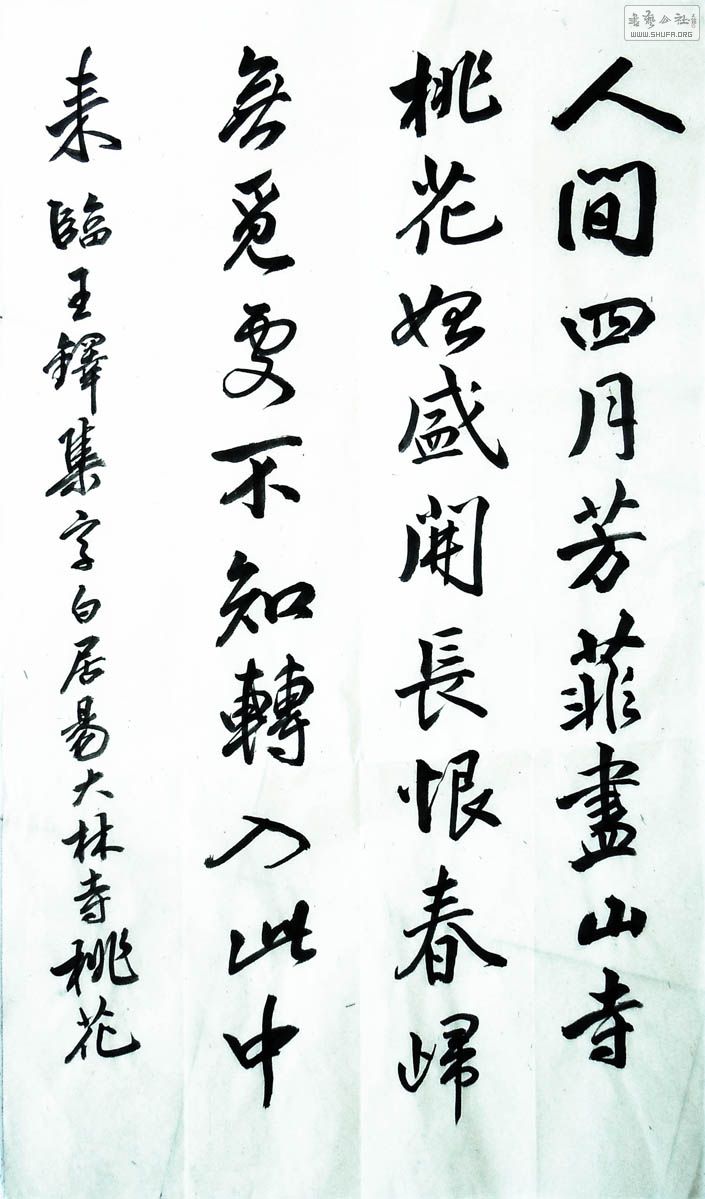 人間四月芳菲盡山寺
桃花始盛開長恨春歸
無覓更不知轉入此中
来臨王鐸集字白居易大林寺桃花
書藝公社
WWW.SHUFA.ORG